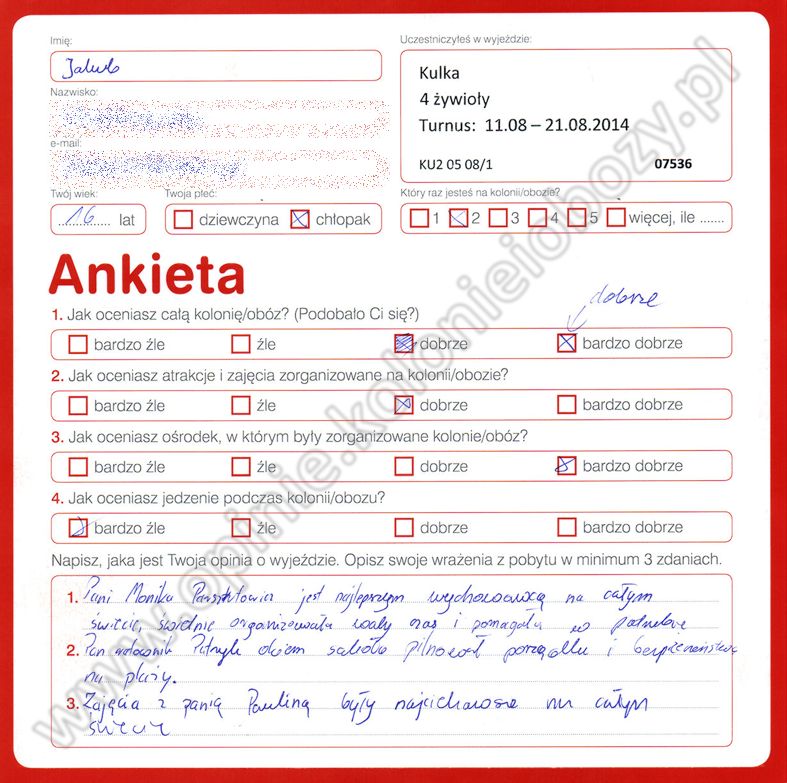 Imię:
Jakub
Uczestniczyłeś w wyjeździe:
Kulka
4 żywioły
Turnus: 11.08 – 21.08.2014
KU2 05 08/1 07536
Nazwisko:
e-mail:
Twój wiek:
16 lat
Twoja płeć:
dziewczyna chłopak
Który raz jesteś na kolonii/obozie?
1 2 3 4 5 więcej, ile .......
Ankieta
dobrze
1. Jak oceniasz całą kolonię/obóz? (Podobało Ci się?)
bardzo źle źle dobrze bardzo dobrze
2. Jak oceniasz atrakcje i zajęcia zorganizowane na kolonii/obozie?
bardzo źle źle dobrze bardzo dobrze
3. Jak oceniasz ośrodek, w którym były zorganizowane kolonie/obóz?
bardzo źle źle dobrze bardzo dobrze
4. Jak oceniasz jedzenie podczas kolonii/obozu?
bardzo źle źle dobrze bardzo dobrze
Napisz, jaka jest Twoja opinia o wyjeździe. Opisz swoje wrażenia z pobytu w minimum 3 zdaniach.
1. Pani Monika jest najlepszym wychowawcą na całym
świecie, świetnie organizowała czas i pomagała w
2. Pan ratownik Patryk okiem sokoła pilnował porządku i bezpieczeństwa
na plaży.
3. Zajęcia z panią Pauliną były najciekawsze na całym
świecie
www.opinie.kolonieiobozy.pl